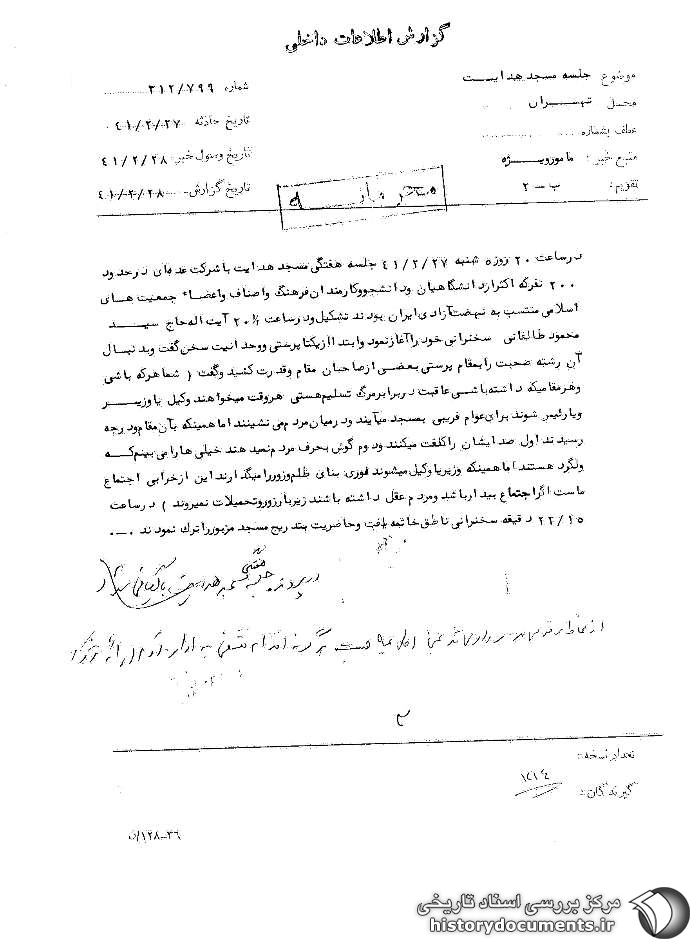 گزارش اطلاعات داخلی
موضوع جلسه مسجد هدایت
شماره ۳۱۲/۷۹۹
محل تهران
تاریخ حادثه ۴۱/۲/۲۷
عطف بشماره
تاریخ وصول خبر ۴۱/۲/۲۸
منبع خبر: مامور ویژه
تاریخ گزارش ۴۱/۲/۲۸
تقویم: ب-۲
محرمانه
در ساعت ۲۰ روزه شنبه ۴۱/۲/۲۷ جلسه هفتگی مسجد هدایت با شرکت عده‌ای در حدود
۲۰۰ نفر که اکثرا از دانشگاهیان و دانشجو و کارمندان فرهنگ و اصناف و اعضاء جمعیت های
اسلامی منتسب به نهضت آزادی ایران بودند تشکیل و در ساعت ۲۰/۴۰ آیت اله حاج سید
محمود طالقانی سخنرانی خود را آغاز نمود و ابتدا از یکتا پرستی و وحدانیت سخن گفت و بدنبال
آن رشته صحبت را بمقام پرستی بعضی از صاحبان مقام و قدرت کشید و گفت ( شما هر که باشی
و هر مقامیکه داشته باشی عاقبت در برابر مرگ تسلیم هستی هر وقت میخواهند وکیل یا وزیر
و یا رئیس شوند برای عوام فریبی بمسجد میآیند و در میان مردم می نشینند اما همینکه بآن مقام و درجه
رسیدند اول صدایشان را کلفت میکنند و دوم گوش بحرف مردم نمیدهند خیلی ها را می بینم که
ولگرد هستند اما همینکه وزیر یا وکیل میشوند فوری بنای ظلم و زور را میگذارند این از خرابی اجتماع
ماست اگر اجتماع بیدار باشد و مردم عقل داشته باشند زیر بار زور و تحمیلات نمیروند ) در ساعت
۲۲/۱۵ دقیقه سخنرانی ناطق خاتمه یافت و حاضرین بتدریج مسجد مزبور را ترك نمودند .-.
در پرونده جلسه هفتگی مسجد هدایت بایگانی شود
۲
تعداد نسخه:
گیرندگان:
۱۲۱۴
۱۲۸-۳۶/ن
مرکز بررسی اسناد تاریخی
historydocuments.ir